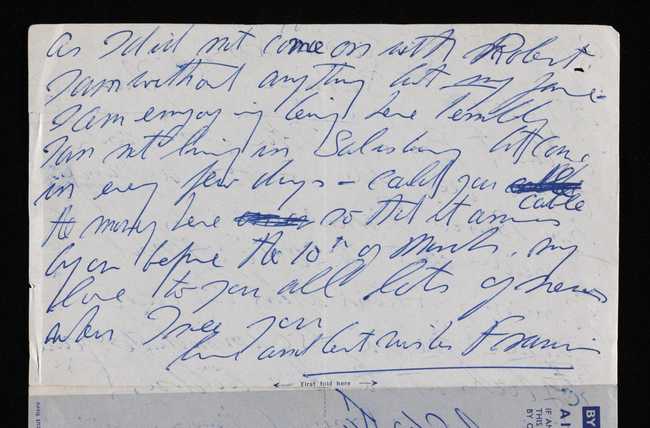 as I did not come on with Robert
I am without anything but my
I am enjoying being here terribly
I am not living in Salisbury but come
in every few days – could you cable
the money here so that it arrives
by or before the 10th of March. my
love to you all lots of news
when I see you
love and best wishes Francis
First fold here
BY
AI
IF AN
THIS
BY O